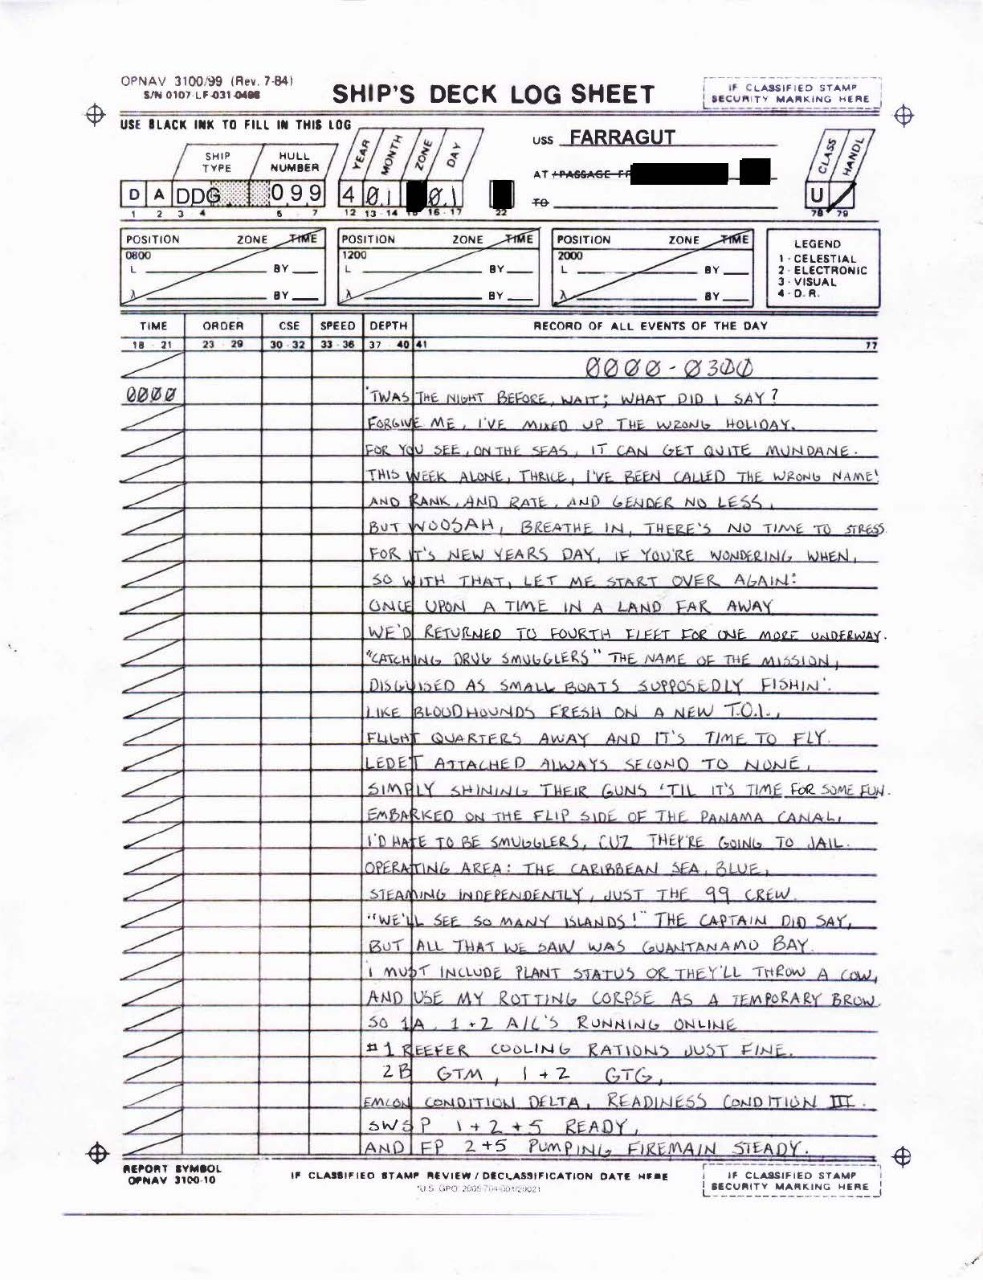 OPNAV 3100/99 (Rev. 7-84)
S/N 0107-LF-031-0498
SHIP'S DECK LOG SHEET
IF CLASSIFIED STAMP
SECURITY MARKING HERE
USE BLACK INK TO FILL IN THIS LOG
USS FARRAGUT
SHIP TYPE HULL NUMBER YEAR MONTH ZONE DAY
AT / PASSAGE FR
CLASS HANDL
D A DDG 099 4 01 01
U
TO
1 2 3 4 6 7 12 13 - 14 15 16 - 17 22 78 79
POSITION ZONE TIME POSITION ZONE TIME POSITION ZONE TIME
LEGEND
0800 1200 2000
1 - CELESTIAL
L BY L BY L BY
2 - ELECTRONIC
3 - VISUAL
λ BY λ BY λ BY
4 - D. R.
TIME ORDER CSE SPEED DEPTH RECORD OF ALL EVENTS OF THE DAY
18 - 21 23 - 29 30 - 32 33 - 36 37 40 41 77
0000-0300
0000 'TWAS THE NIGHT BEFORE, WAIT; WHAT DID I SAY?
FORGIVE ME, I'VE MIXED UP THE WRONG HOLIDAY.
FOR YOU SEE, ON THE SEAS, IT CAN GET QUITE MUNDANE.
THIS WEEK ALONE, THRICE, I'VE BEEN CALLED THE WRONG NAME!
AND RANK, AND RATE, AND GENDER NO LESS,
BUT WOOSAH, BREATHE IN, THERE'S NO TIME TO STRESS
FOR IT'S NEW YEARS DAY, IF YOU'RE WONDERING WHEN,
SO WITH THAT, LET ME START OVER AGAIN:
ONCE UPON A TIME IN A LAND FAR AWAY
WE'D RETURNED TO FOURTH FLEET FOR ONE MORE UNDERWAY.
"CATCHING DRUG SMUGGLERS" THE NAME OF THE MISSION,
DISGUISED AS SMALL BOATS SUPPOSEDLY FISHIN'.
LIKE BLOODHOUNDS FRESH ON A NEW T.O.I.,
FLIGHT QUARTERS AWAY AND IT'S TIME TO FLY.
LEDET ATTACHED ALWAYS SECOND TO NONE,
SIMPLY SHINING THEIR GUNS 'TIL IT'S TIME FOR SOME FUN.
EMBARKED ON THE FLIP SIDE OF THE PANAMA CANAL,
I'D HATE TO BE SMUGGLERS, CUZ THEY'RE GOING TO JAIL.
OPERATING AREA: THE CARIBBEAN SEA, BLUE,
STEAMING INDEPENDENTLY, JUST THE 99 CREW.
"WE'LL SEE SO MANY ISLANDS!" THE CAPTAIN DID SAY,
BUT ALL THAT WE SAW WAS GUANTANAMO BAY.
I MUST INCLUDE PLANT STATUS OR THEY'LL THROW A COW,
AND USE MY ROTTING CORPSE AS A TEMPORARY BROW.
SO 1A, 1+2 A/C'S RUNNING ONLINE
#1 REEFER COOLING RATIONS JUST FINE.
2B GTM, 1+2 GTG,
EMCON CONDITION DELTA, READINESS CONDITION III.
SWSP 1+2+5 READY,
AND FP 2+5 PUMPING FIREMAIN STEADY.
REPORT SYMBOL
OPNAV 3100-10
IF CLASSIFIED STAMP REVIEW / DECLASSIFICATION DATE HERE
IF CLASSIFIED STAMP
SECURITY MARKING HERE